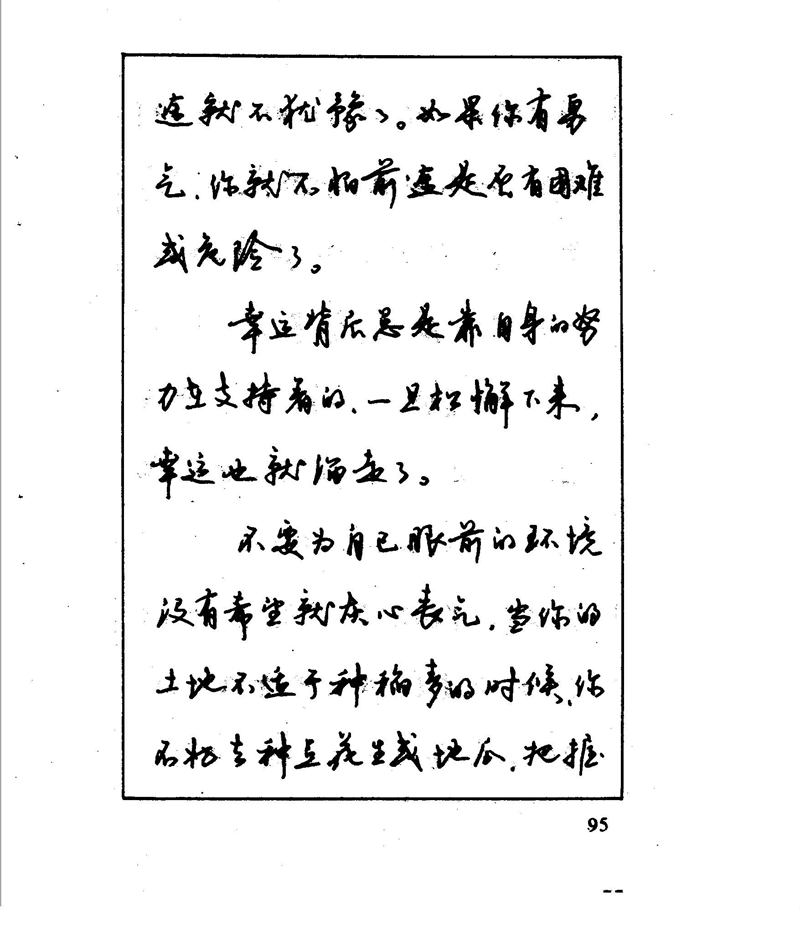 途就不犹豫了。如果你有勇
气,你就不怕前途是否有困难
或危险了。
幸运背后总是靠自身的努
力在支持着的,一旦松懈下来,
幸运也就溜走了。
不要为自己眼前的环境
没有希望就灰心丧气,当你的
土地不适于种稻麦的时候,你
不妨去种点花生或地瓜,把握
95
--